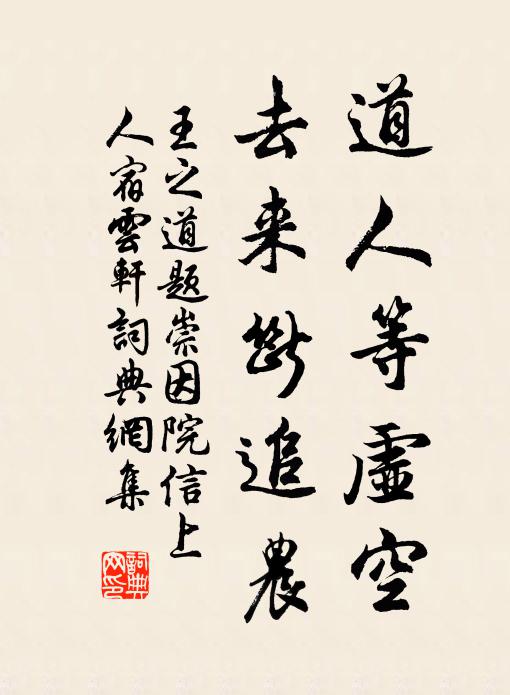 道人等虛空
去来斷追農
王之道題崇因院信上
人宿雲軒詞典網集
詞典
网印